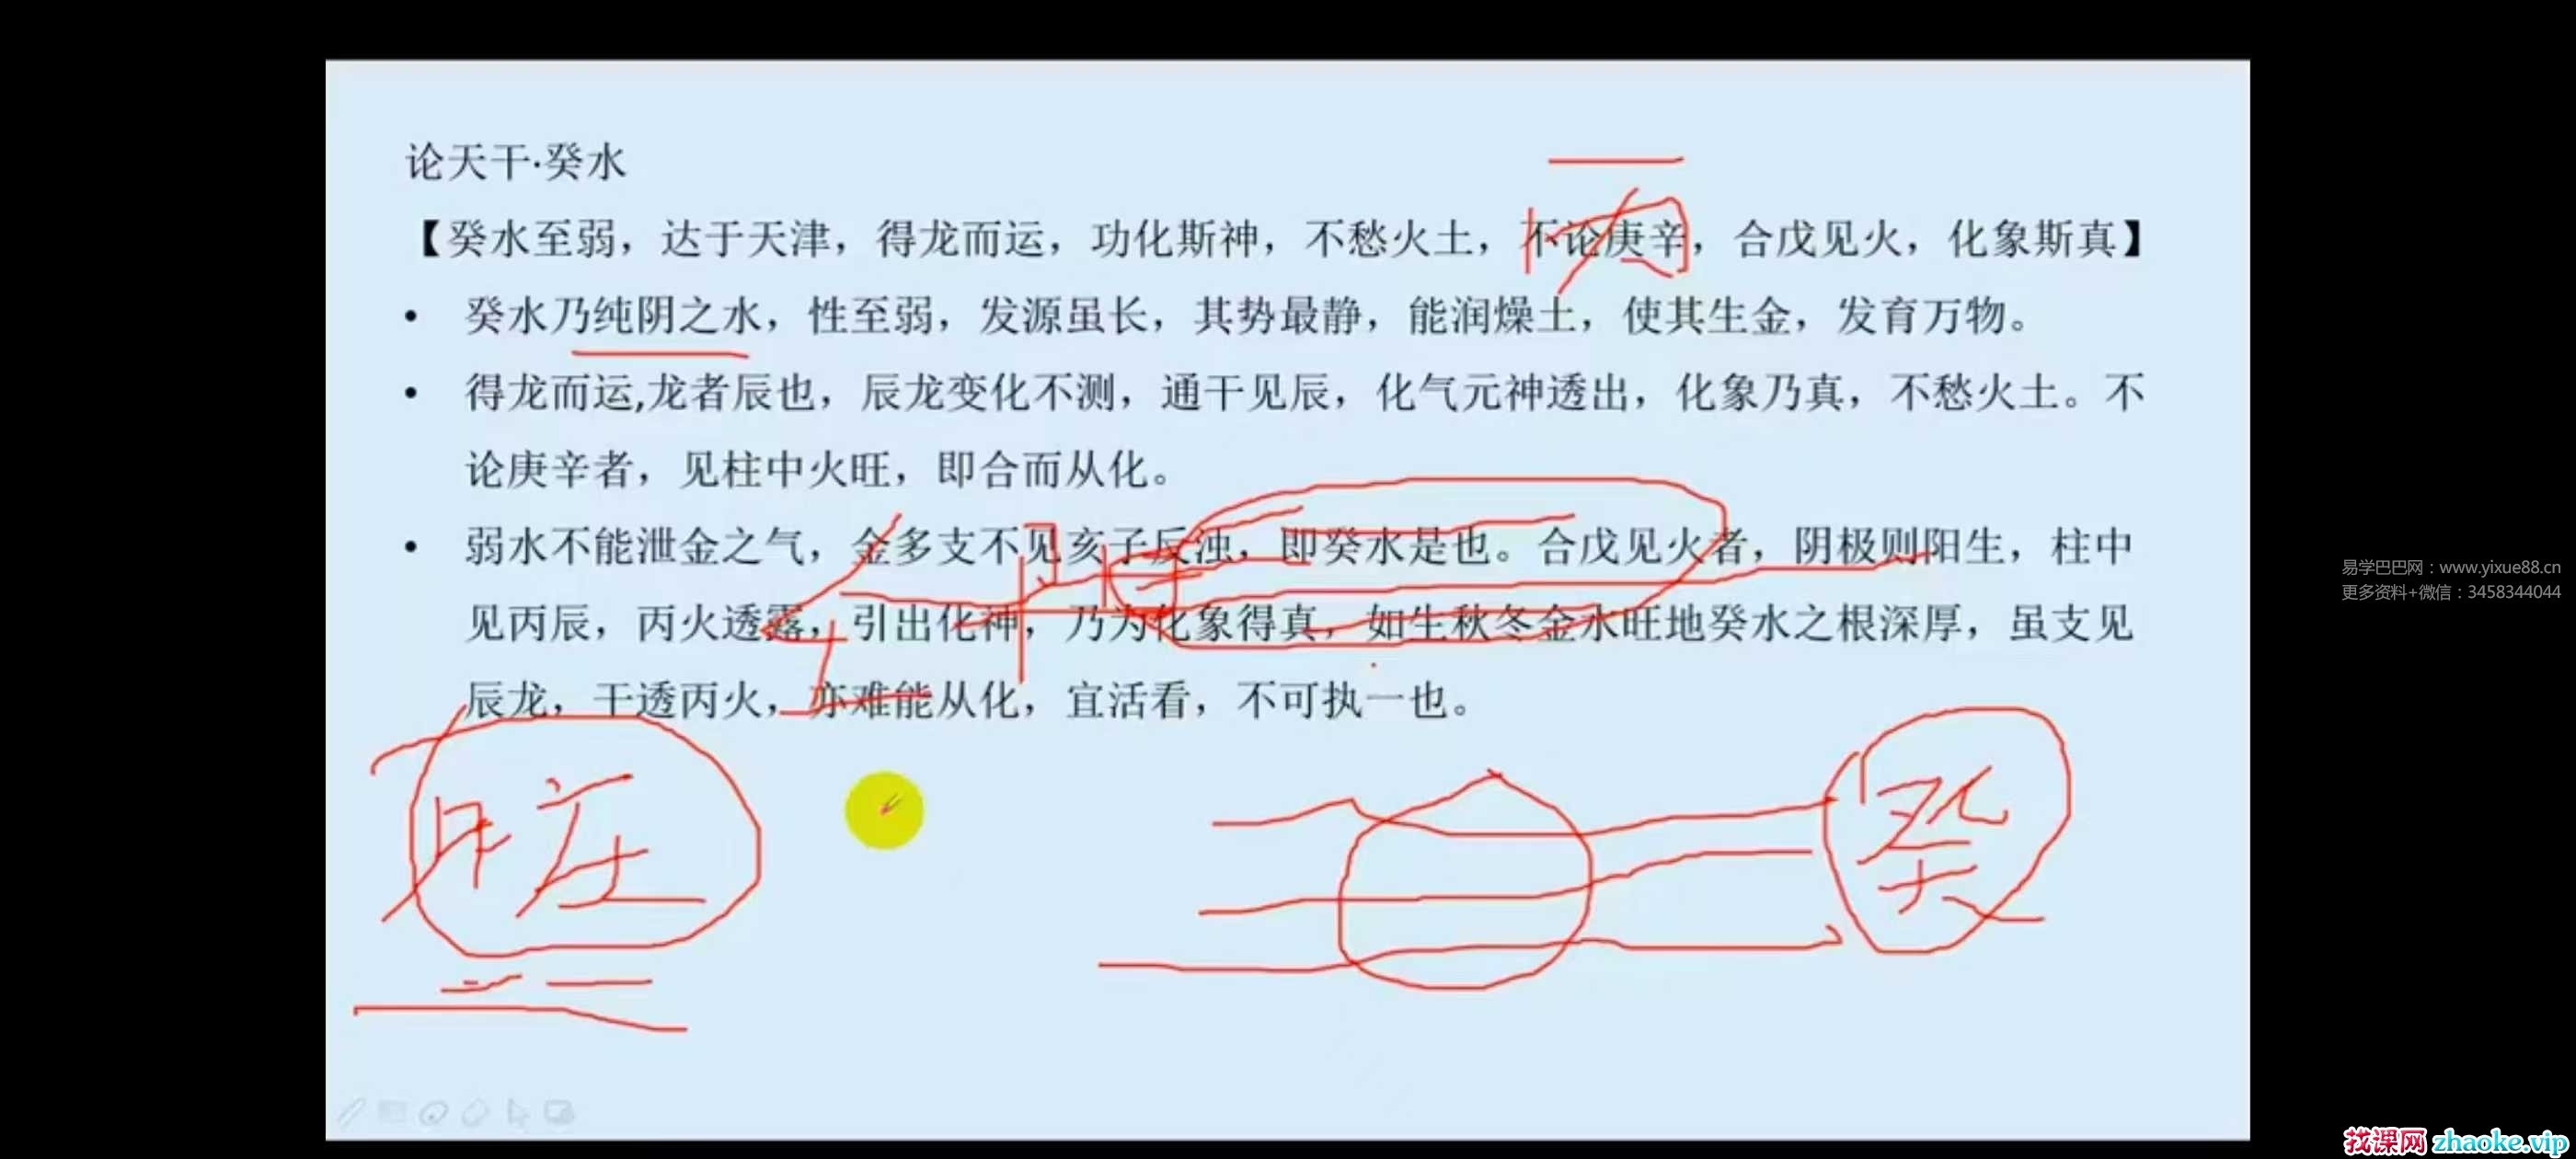 论天干·癸水
【癸水至弱，达于天津，得龙而运，功化斯神，不愁火土，不论庚辛，合戊见火，化象斯真】
• 癸水乃纯阴之水，性至弱，发源虽长，其势最静，能润燥土，使其生金，发育万物。
• 得龙而运,龙者辰也，辰龙变化不测，通干见辰，化气元神透出，化象乃真，不愁火土。不
论庚辛者，见柱中火旺，即合而从化。
• 弱水不能泄金之气，金多支不见亥子反浊，即癸水是也。合戊见火者，阴极则阳生，柱中
见丙辰，丙火透露，引出化神，乃为化象得真，如生秋冬金水旺地癸水之根深厚，虽支见
辰龙，干透丙火，亦难能从化，宜活看，不可执一也。
癸
易学巴巴网：www.yixue88.cn
更多资料+微信：3458344044
找课网 zhaoke.vip